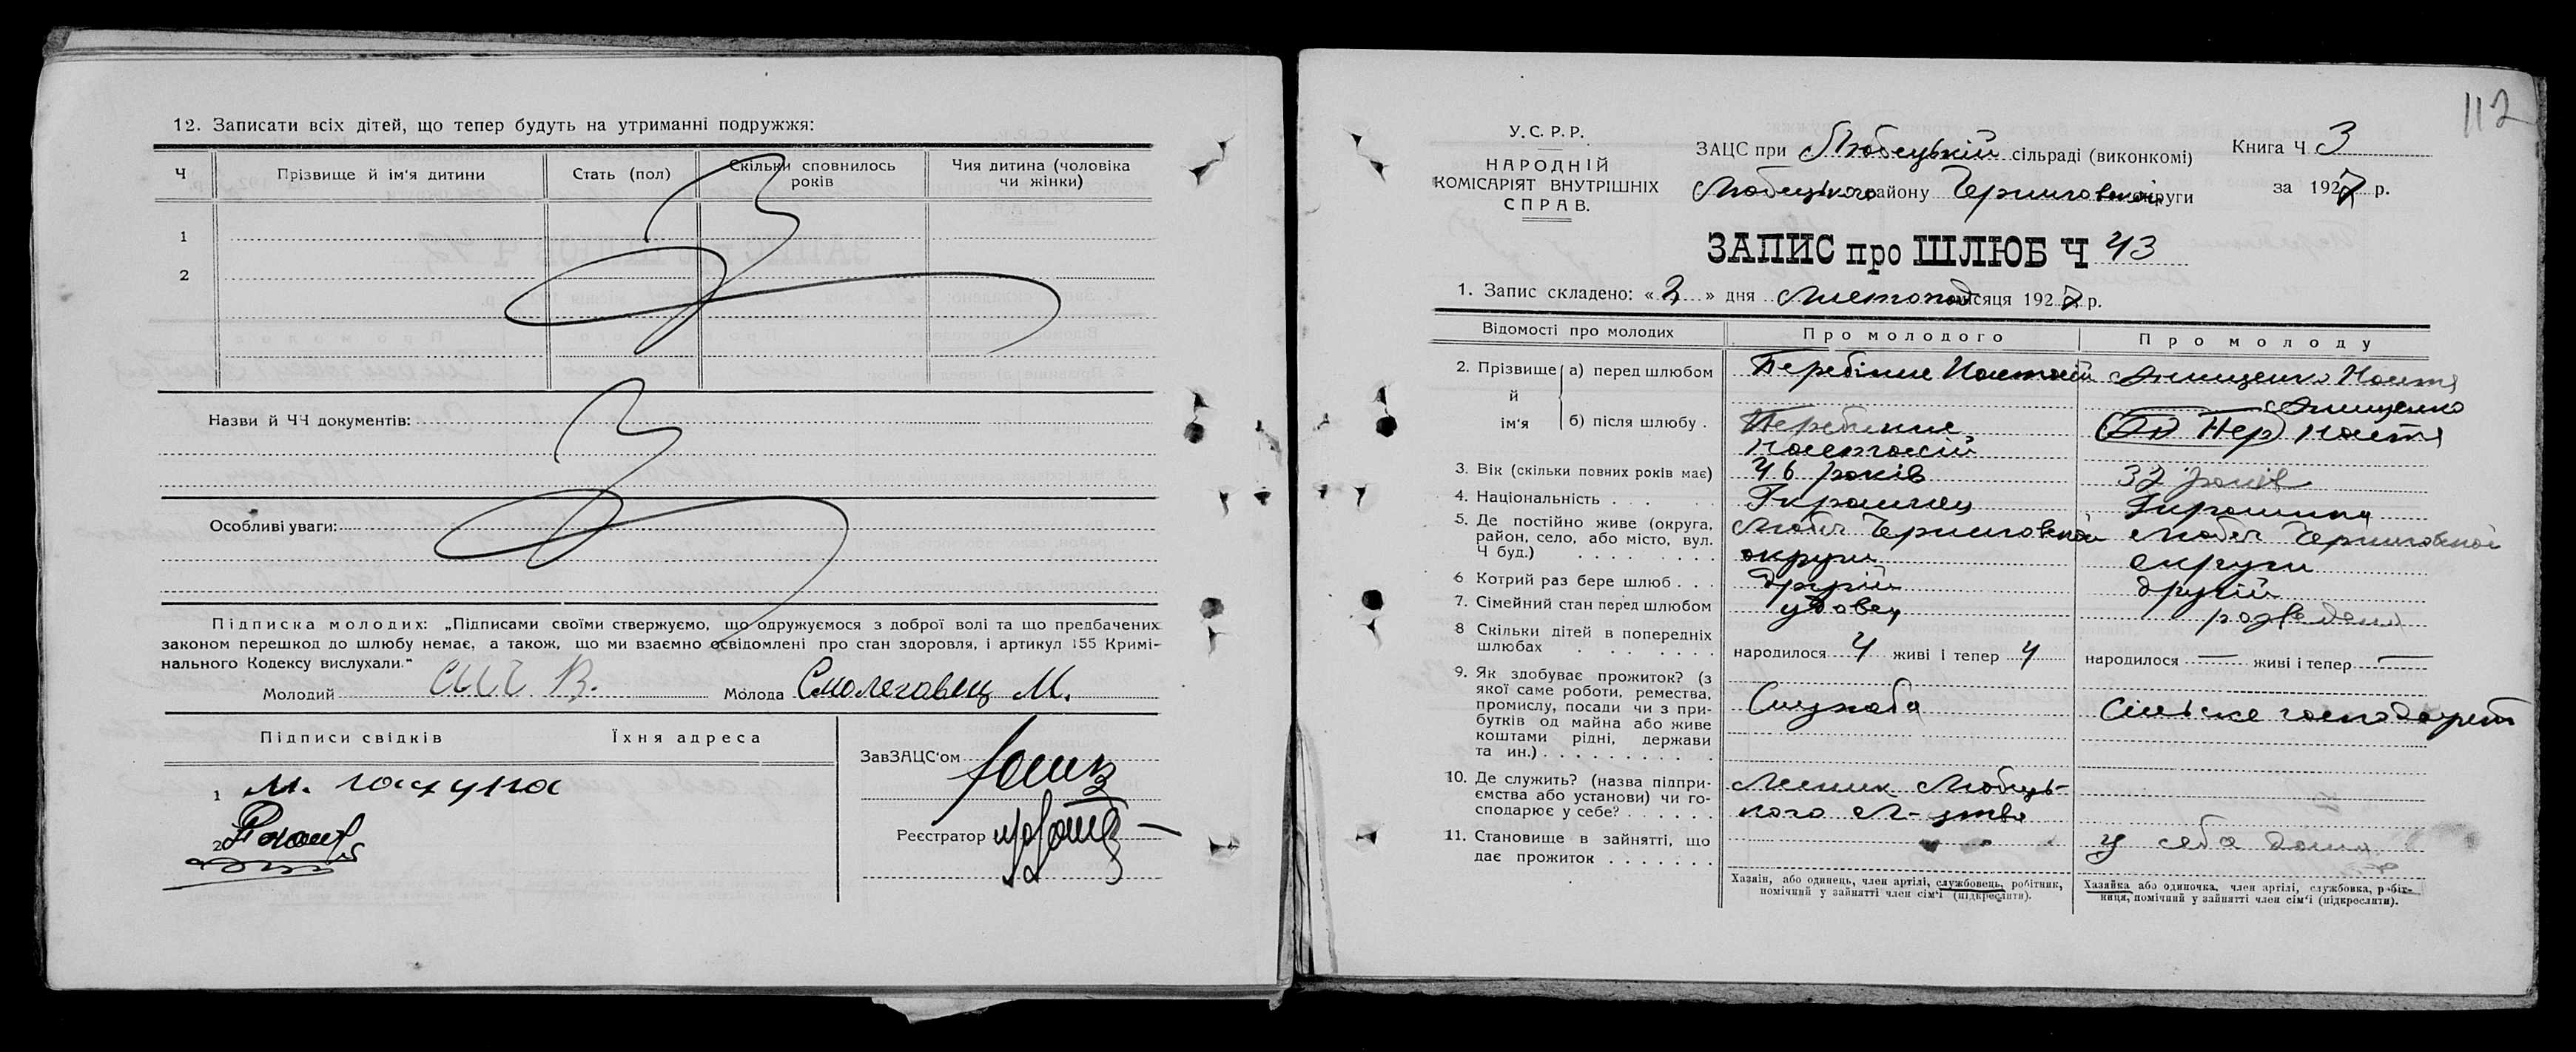 12. Записати всіх дітей, що тепер будуть на утриманні подружжя:
Ч Прізвище й ім'я дитини Стать (пол) Скільки сповнилось років Чия дитина (чоловіка чи жінки)
1
2
Назви й ЧЧ документів:
Особливі уваги:
Підписка молодих: „Підписами своїми стверджуємо, що одружуємося з доброї волі та що предбачених
законом перешкод до шлюбу немає, а також, що ми взаємно освідомлені про стан здоров'я, і артикул 155 Кримі-
нального Кодексу вислухали."
Молодий Сич В. Молода Смолеговец М.
Підписи свідків Їхня адреса
ЗавЗАЦС'ом
1 М.
Реєстратор
2
112
У.С.Р.Р.
НАРОДНІЙ
КОМІСАРІЯТ ВНУТРІШНІХ
СПРАВ.
ЗАЦС при Любецькій сільраді (виконкомі)
Любецького району Черниговської округи
Книга Ч 3
за 1927 р.
ЗАПИС про ШЛЮБ Ч 43
1. Запис складено: « 2 » дня листопад місяця 1927 р.
Відомості про молодих Про молодого Про молоду
2. Прізвище й ім'я а) перед шлюбом Онищенко Настя
Онищенко
б) після шлюбу . Пер Настя
3. Вік (скільки повних років має) 46 років 32 років
4. Національність . . Українец Українка
5. Де постійно живе (округа, Любеч Черниговской Любеч Черниговской
район, село, або місто, вул. округи округи
Ч буд.) . . . . . . .
6 Котрий раз бере шлюб . . . другій другій
7. Сімейний стан перед шлюбом удовец розведена
8 Скільки дітей в попередніх
шлюбах . . . . . . народилося 4 живі і тепер 4 народилося — живі і тепер —
9. Як здобуває прожиток? (з
якої саме роботи, ремества,
промислу, посади чи з при- Служба Сільське господарст
бутків од майна або живе
коштами рідні, держави
та ин.) . . . . . . . . .
10. Де служить? (назва підпри- Любець-
ємства або установи) чи го- кого
сподарює у себе? . . . . . .
11. Становище в зайнятті, що у себа дома
дає прожиток . . . . . . .
Хазяїн, або одинець, член артілі, службовець, робітник,
помічний у зайнятті член сім'ї (підкреслити).
Хазяйка або одиночка, член артілі, службовка, робіт-
ниця, помічний у зайнятті член сім'ї (підкреслити).